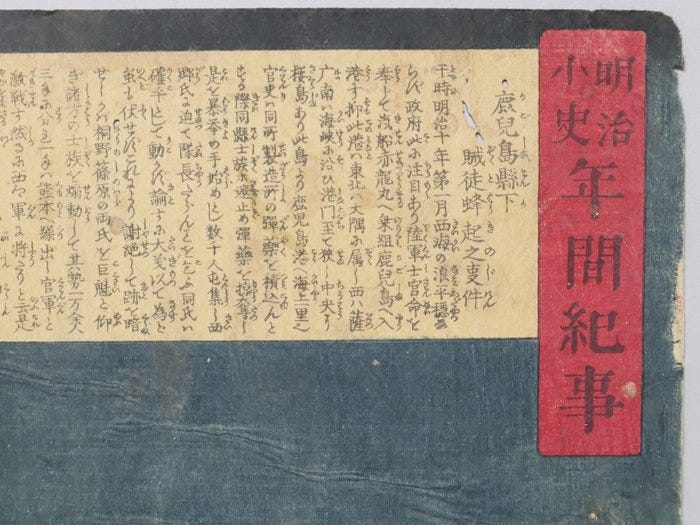 明治小史
年間紀事
鹿兒島縣下
賊徒蜂起之事件
平時明治十年第一月西海の浪平穏な
らず政府此に注目あり陸軍士官命を
奉じて汽船赤龍丸へ乗組鹿児島へ入
港す抑此港ハ東北ハ大隅に属し西ハ薩
广南ハ海峡に沿ひ港門至て狭し中央に
桜島あり此島より鹿児島港へ海上一里
官吏ハ同所製造所の弾薬を積込んと
する際同縣士族等遮止め弾薬を掠奪し
是を暴挙の手始めとし数千人屯集し西
郷氏に迫て隊長たらんことを乞ふ同氏ハ
確乎として動かず諭すに大義を以て為と
虽も伏せずこれにより謝絶して跡を暗
せしかバ桐野篠原の両氏を巨魁と仰
ぎ諸方の士族を煽動して其勢一万余人
三手に分れ一手ハ熊本へ繰出し官軍と
敵戦す然るに西